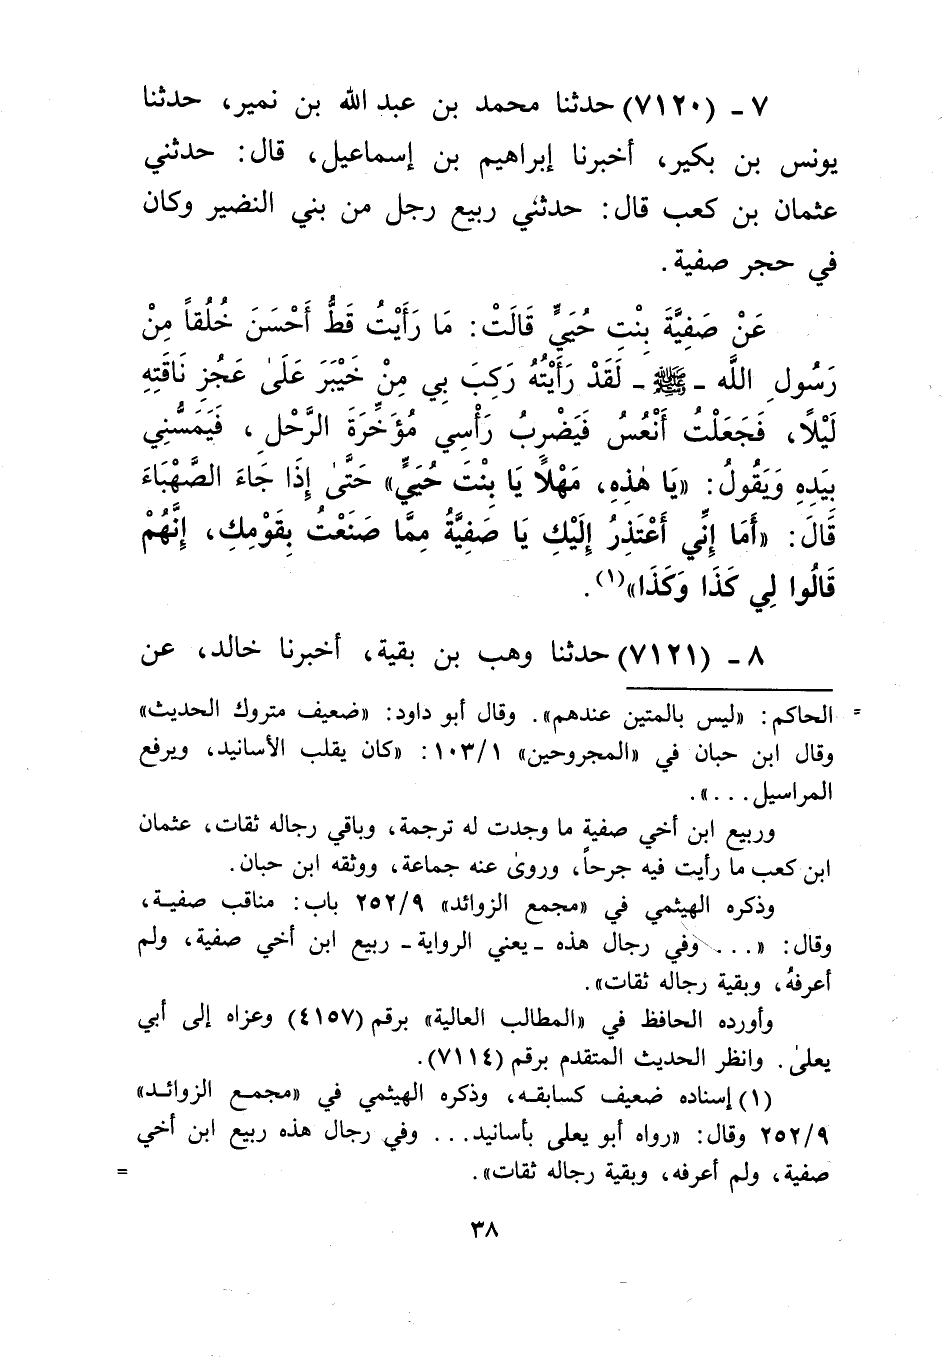 ٧ ـ (٧١٢٠) حدثنا محمد بن عبد الله بن نمير، حدثنا
يونس بن بكير، أخبرنا إبراهيم بن إسماعيل، قال: حدثني
عثمان بن كعب قال: حدثني ربيع رجل من بني النضير وكان
في حجر صفية.
عَنْ صَفِيَّةَ بِنْتِ حُيَيٍّ قَالَتْ: مَا رَأَيْتُ قَطُّ أَحْسَنَ خُلُقاً مِنْ
رَسُولِ اللَّه ـ ﷺ ـ لَقَدْ رَأَيْتُهُ رَكِبَ بِي مِنْ خَيْبَرَ عَلَىٰ عَجُزِ نَاقَتِهِ
لَيْلًا، فَجَعَلْتُ أَنْعُسُ فَيَضْرِبُ رَأْسِي مُؤَخِّرَةَ الرَّحْلِ، فَيَمَسُّنِي
بِيَدِهِ وَيَقُولُ: «يَا هٰذِهِ، مَهْلًا يَا بِنْتَ حُيَيٍّ» حَتَّىٰ إِذَا جَاءَ الصَّهْبَاءَ
قَالَ: «أَمَا إِنِّي أَعْتَذِرُ إِلَيْكِ يَا صَفِيَّةُ مِمَّا صَنَعْتُ بِقَوْمِكِ، إِنَّهُمْ
قَالُوا لِي كَذَا وَكَذَا»(١).
٨ ـ (٧١٢١) حدثنا وهب بن بقية، أخبرنا خالد، عن
= الحاكم: «ليس بالمتين عندهم». وقال أبو داود: «ضعيف متروك الحديث»
وقال ابن حبان في «المجروحين» ١٠٣/١: «كان يقلب الأسانيد، ويرفع
المراسيل...».
وربيع ابن أخي صفية ما وجدت له ترجمة، وباقي رجاله ثقات، عثمان
ابن كعب ما رأيت فيه جرحاً، وروىٰ عنه جماعة، ووثقه ابن حبان.
وذكره الهيثمي في «مجمع الزوائد» ٢٥٢/٩ باب: مناقب صفية،
وقال: «... وفي رجال هذه ـ يعني الرواية ـ ربيع ابن أخي صفية، ولم
أعرفهُ، وبقية رجاله ثقات».
وأورده الحافظ في «المطالب العالية» برقم (٤١٥٧) وعزاه إلى أبي
يعلىٰ. وانظر الحديث المتقدم برقم (٧١١٤).
(١) إسناده ضعيف كسابقه، وذكره الهيثمي في «مجمع الزوائد»
٢٥٢/٩ وقال: «رواه أبو يعلى بأسانيد... وفي رجال هذه ربيع ابن أخي
صفية، ولم أعرفه، وبقية رجاله ثقات». =
٣٨